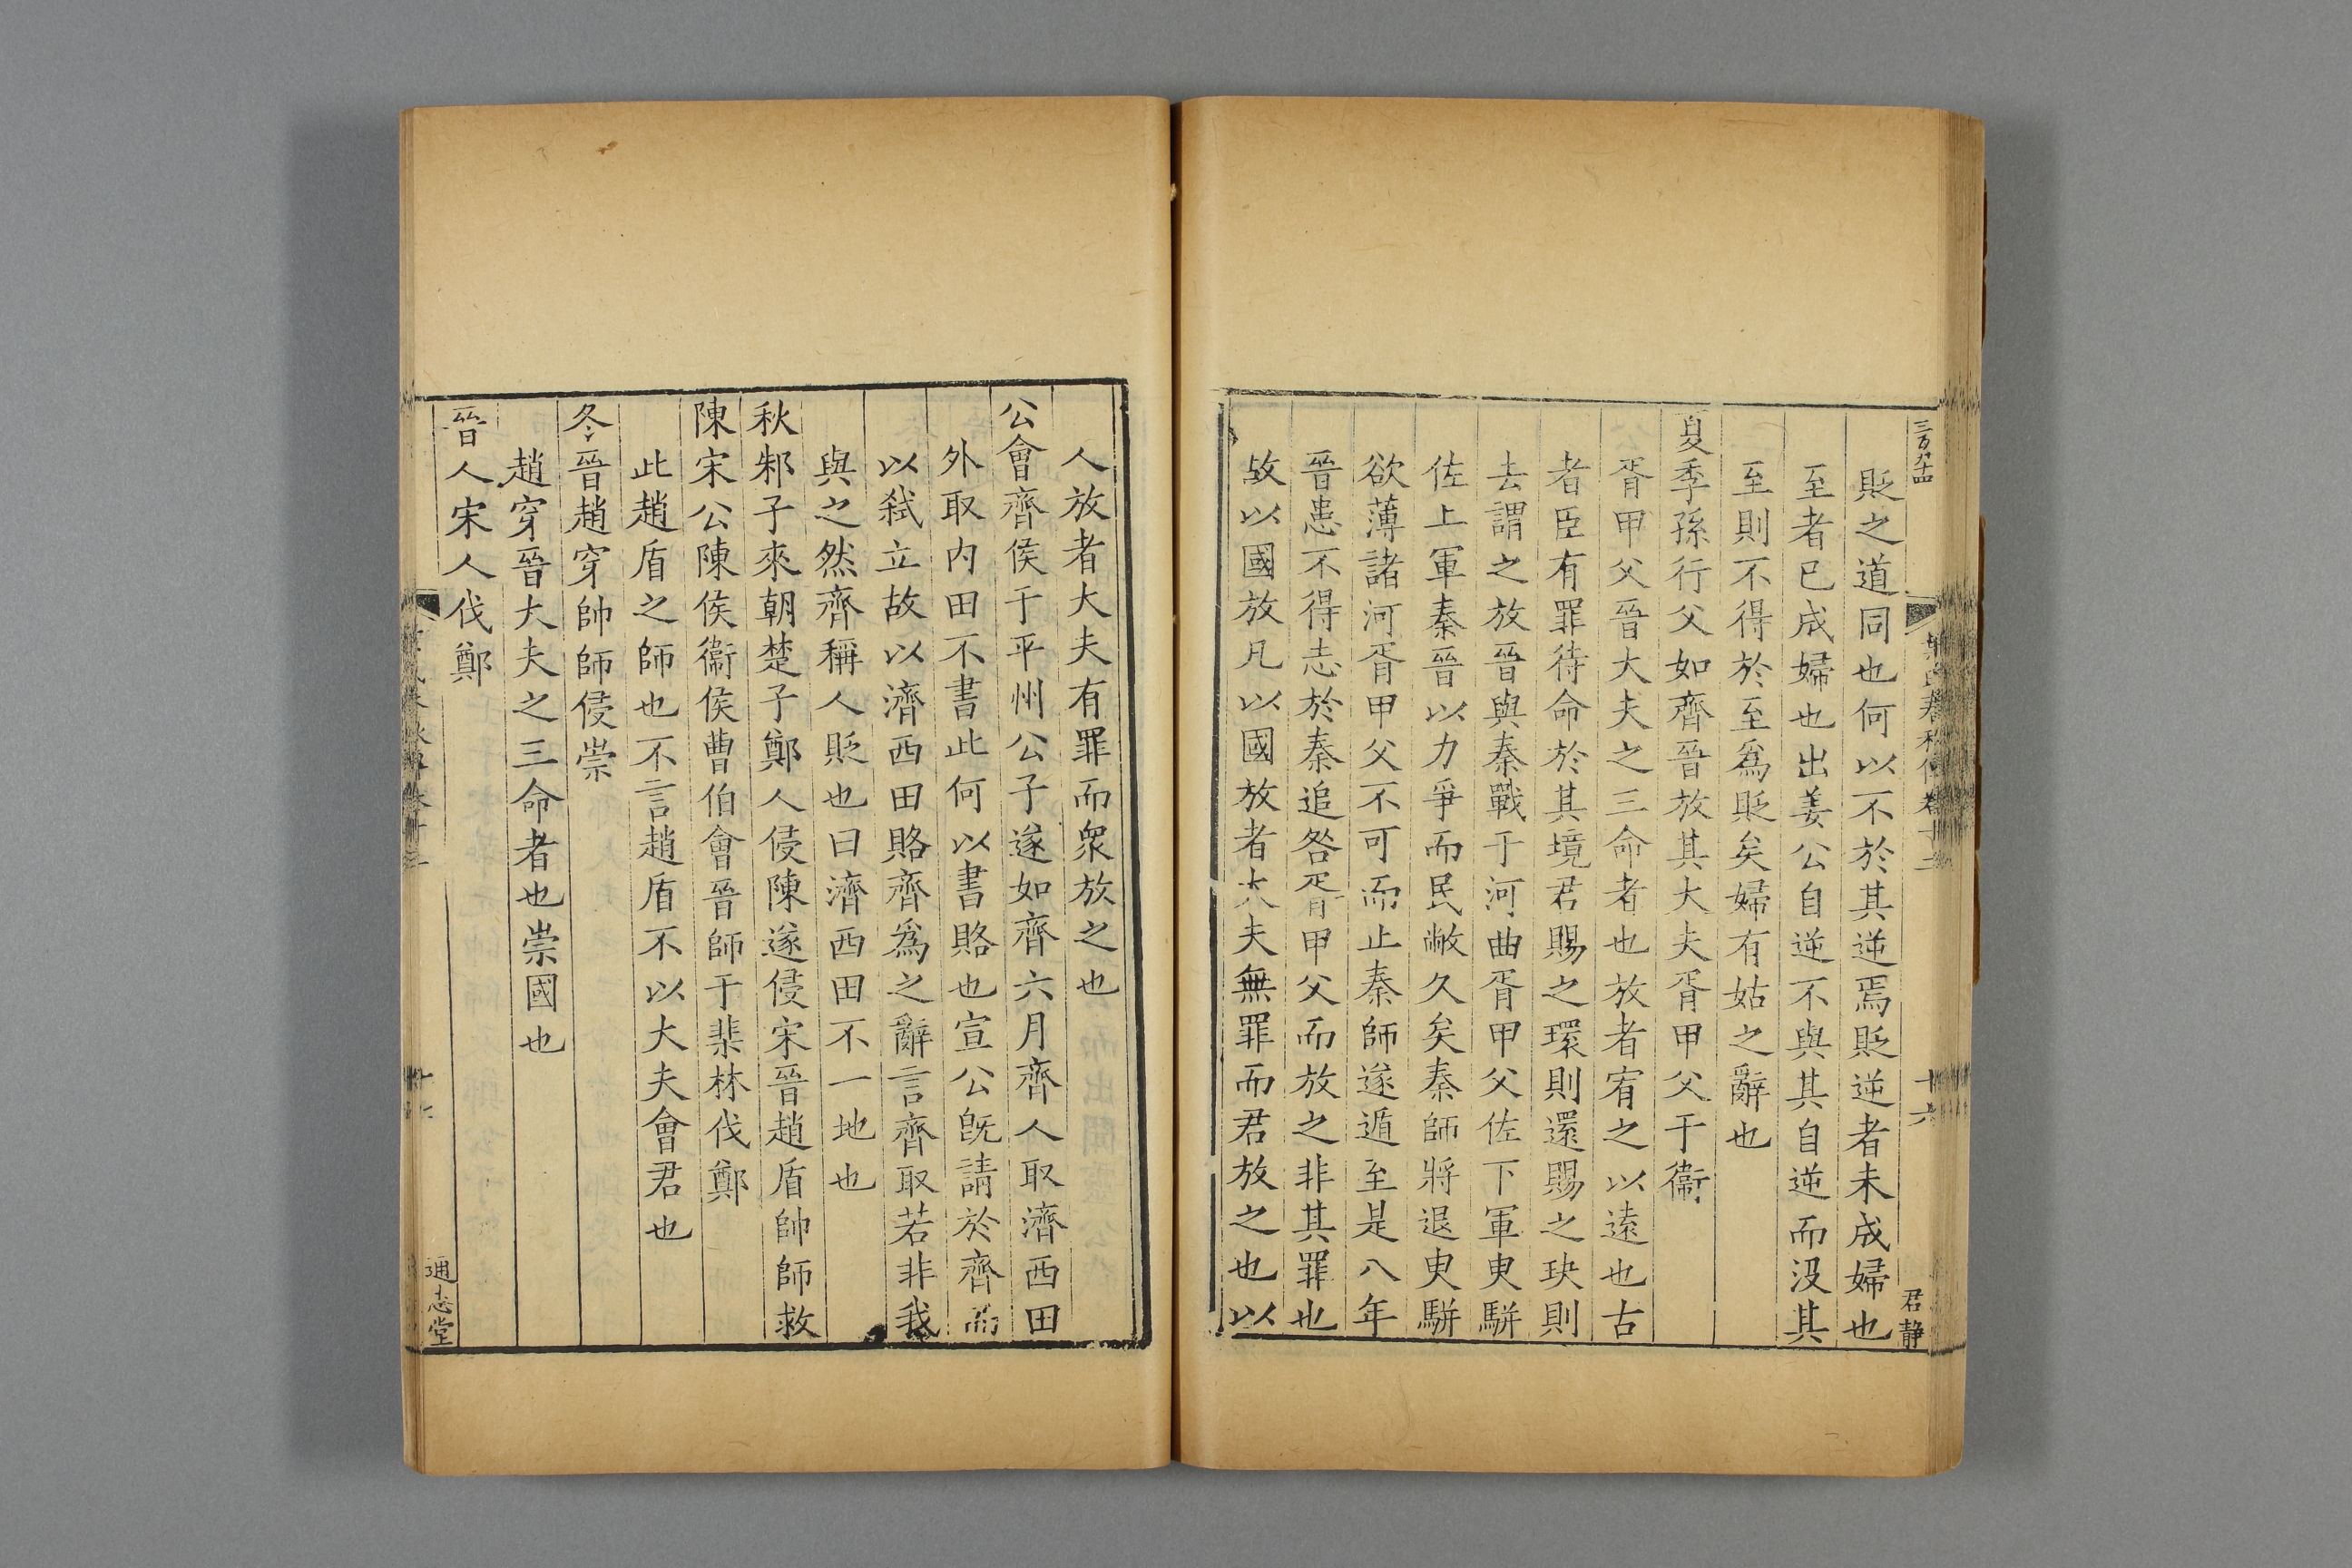 貶之道同也何以不於其逆焉貶逆者未成婦也
至者已成婦也出姜公自逆不與其自逆而沒其
至則不得於至爲貶矣婦有姑之辭也
夏季孫行父如齊晉放其大夫胥甲父于衞
胥甲父晉大夫之三命者也放者宥之以遠也古
者臣有罪待命於其境君賜之環則還賜之玦則
去謂之放晉與秦戰于河曲胥甲父佐下軍㬰駢
佐上軍秦晉以力爭而民敝久矣秦師將退㬰駢
欲薄諸河胥甲父不可而止秦師遂遁至是八年
晉患不得志於秦追咎胥甲父而放之非其罪也
故以國放凡以國放者大夫無罪而君放之也以
君靜
十六
人放者大夫有罪而衆放之也
公會齊侯于平州公子遂如齊六月齊人取濟西田
外取内田不書此何以書賂也宣公旣請於齊而
以弑立故以濟西田賂齊爲之辭言齊取若非我
與之然齊稱人貶也曰濟西田不一地也
秋邾子來朝楚子鄭人侵陳遂侵宋晉趙盾帥師救
陳宋公陳侯衞侯曹伯會晉師于棐林伐鄭
此趙盾之師也不言趙盾不以大夫會君也
冬晉趙穿帥師侵崇
趙穿晉大夫之三命者也崇國也
晉人宋人伐鄭
通志堂